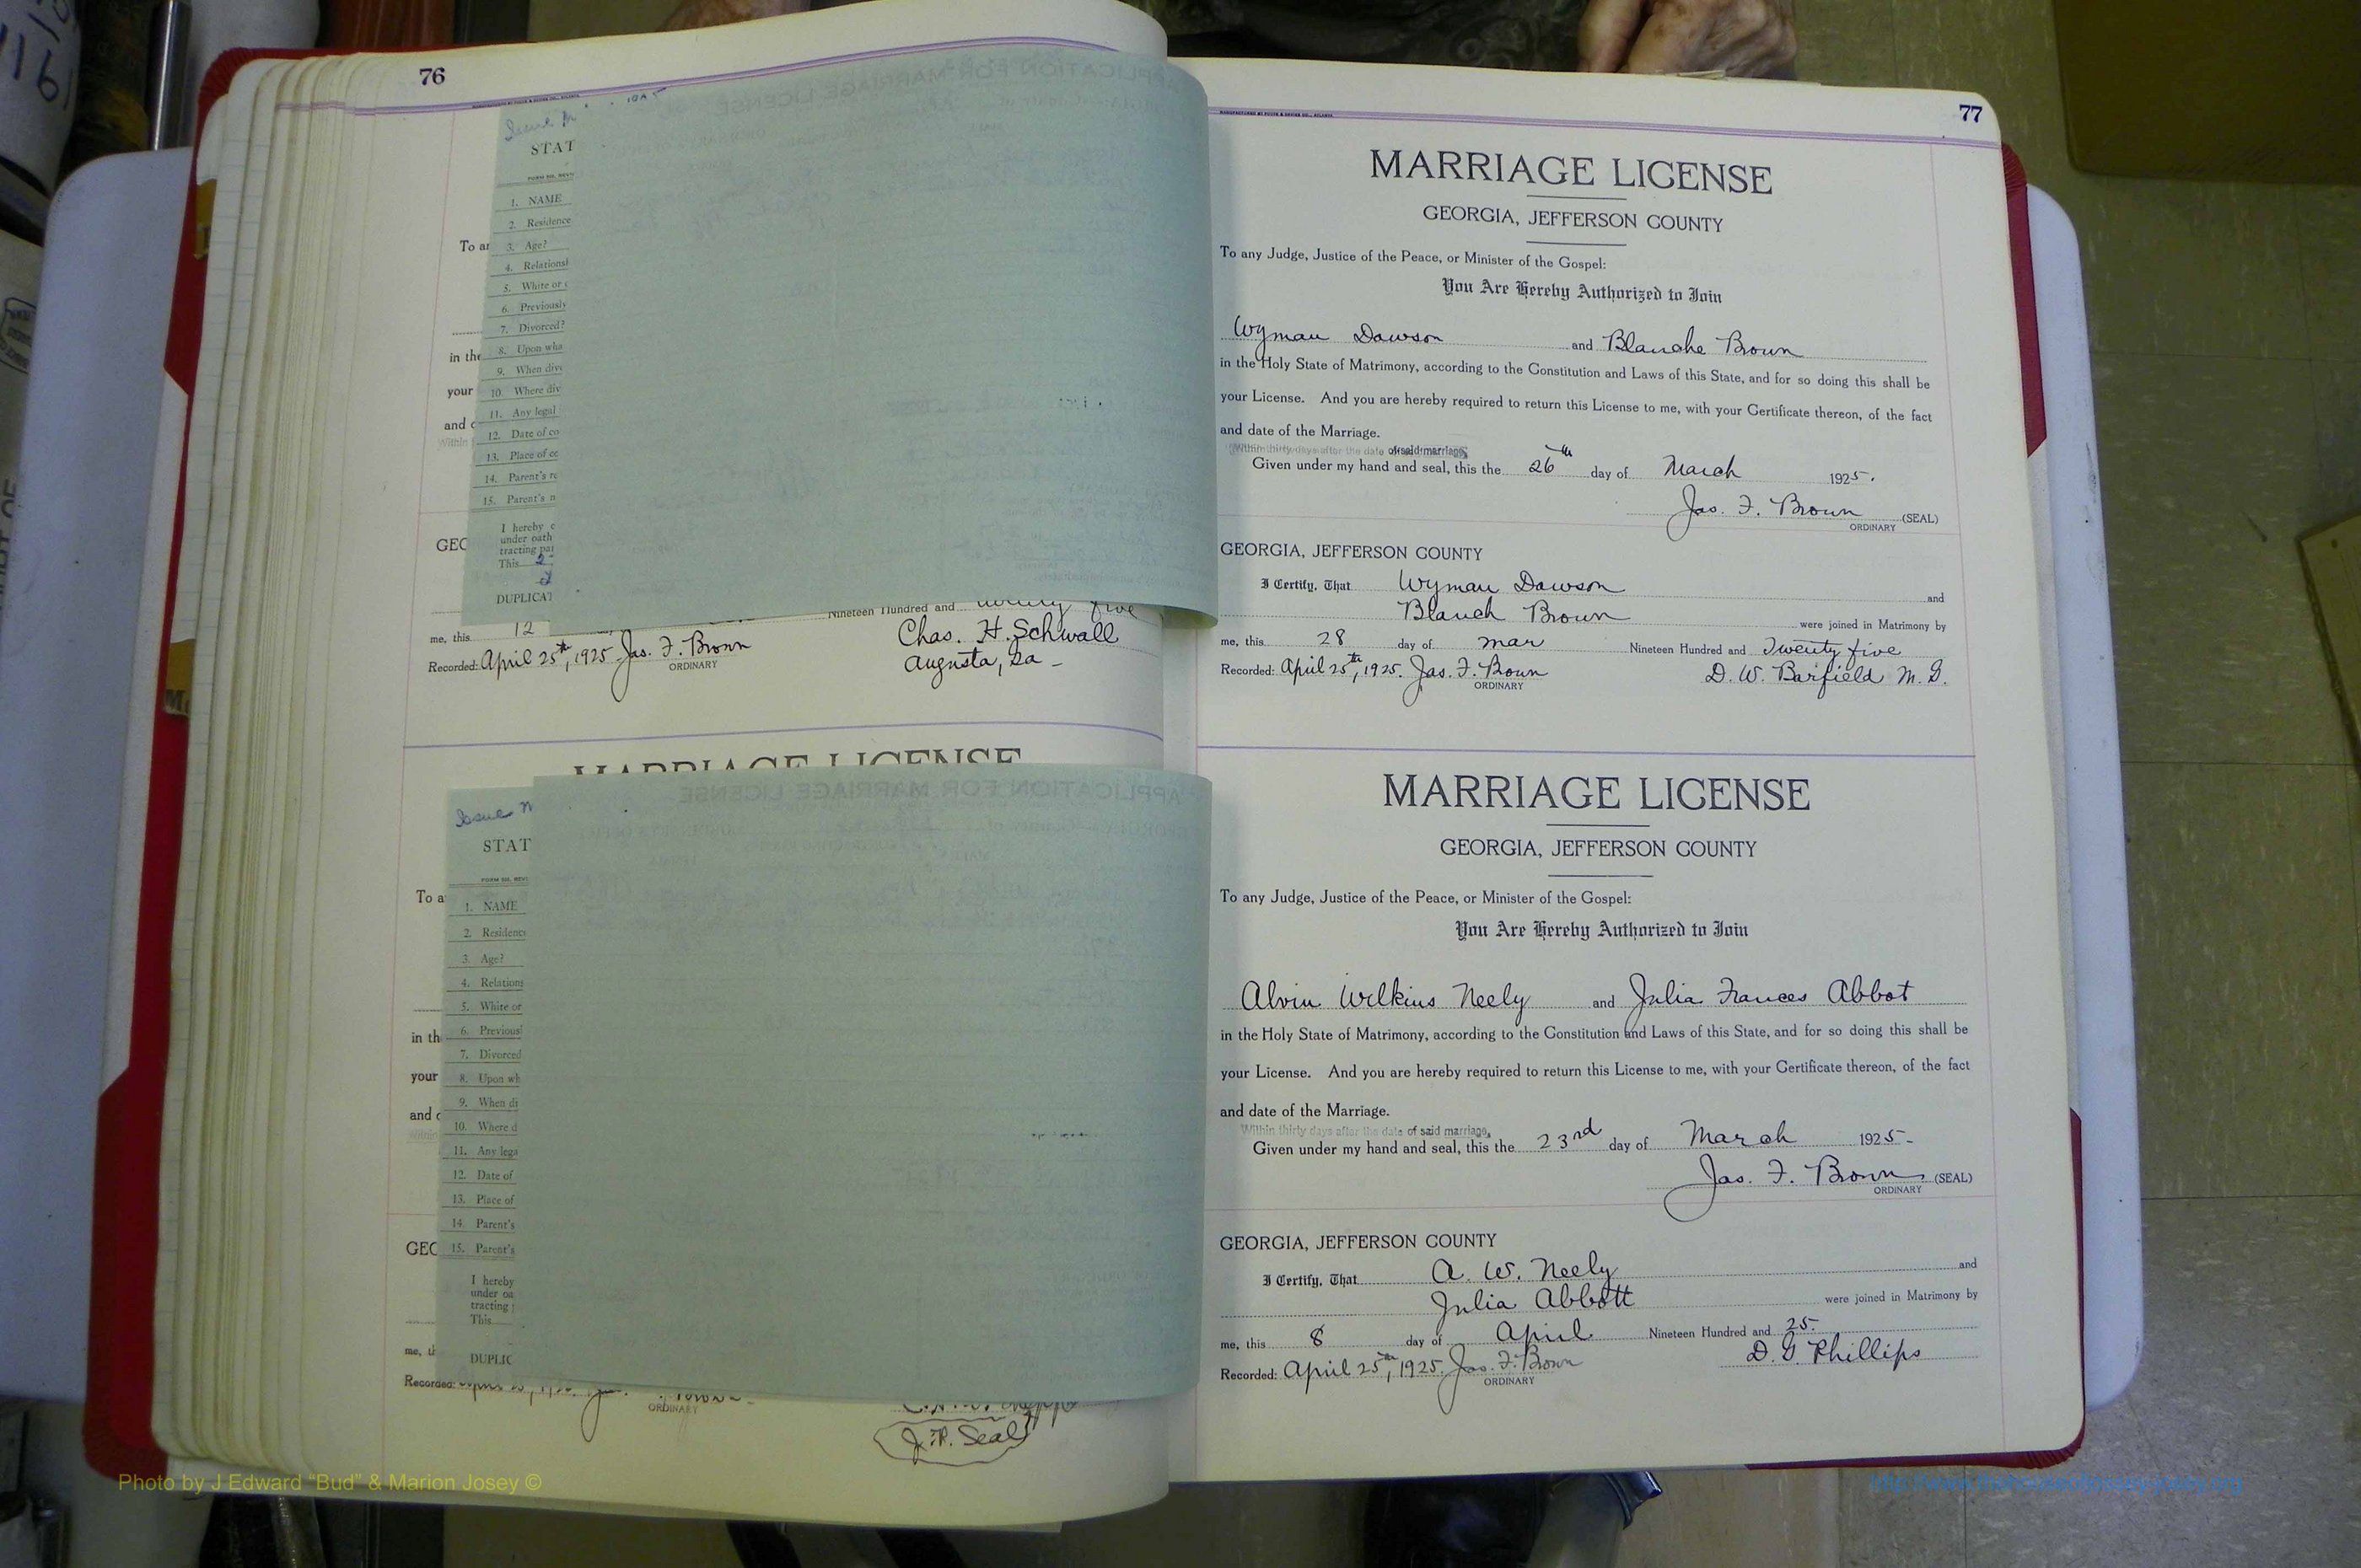 76
Issue
STAT
1. NAME
2. Residence
To an
3. Age?
4. Relationsh
5. White or c
6. Previously
7. Divorced?
in the
8. Upon wha
9. When div
your
10. Where div
11. Any legal
and c
12. Date of co
Within
13. Place of ce
14. Parent's re
15. Parent's n
I hereby c
under oath
tracting par
GEO
This 2
DUPLICAT
Nineteen Hundred and twenty five
me, this 12
Chas. H. Schwall
Recorded: April 25th, 1925. Jas. F. Brown
ORDINARY
Augusta, Ga -
MARRIAGE LICENSE
APPLICATION FOR MARRIAGE LICENSE
Issue
STAT
To a
1. NAME
2. Residence
3. Age?
4. Relations
5. White or
6. Previousl
in th
7. Divorced
your
8. Upon wh
9. When di
and c
10. Where d
11. Any lega
12. Date of
13. Place of
14. Parent's
GEO
15. Parent's
I hereby
under oa
tracting
This
me, th
DUPLIC
Recorded:
ORDINARY
J.P. Seal
77
MARRIAGE LICENSE
GEORGIA, JEFFERSON COUNTY
To any Judge, Justice of the Peace, or Minister of the Gospel:
You Are Hereby Authorized to Join
Wyman Dawson and Blanche Brown
in the Holy State of Matrimony, according to the Constitution and Laws of this State, and for so doing this shall be
your License. And you are hereby required to return this License to me, with your Certificate thereon, of the fact
and date of the Marriage.
Within thirty days after the date of said marriage,
Given under my hand and seal, this the 26th day of March 1925.
Jas. F. Brown (SEAL)
ORDINARY
GEORGIA, JEFFERSON COUNTY
I Certify, That Wyman Dawson and
Blanch Brown were joined in Matrimony by
me, this 28 day of mar Nineteen Hundred and Twenty five
Recorded: April 25th, 1925. Jas. F. Brown D. W. Barfield M. G.
ORDINARY
MARRIAGE LICENSE
GEORGIA, JEFFERSON COUNTY
To any Judge, Justice of the Peace, or Minister of the Gospel:
You Are Hereby Authorized to Join
Alvin Wilkins Neely and Julia Frances Abbot
in the Holy State of Matrimony, according to the Constitution and Laws of this State, and for so doing this shall be
your License. And you are hereby required to return this License to me, with your Certificate thereon, of the fact
and date of the Marriage.
Within thirty days after the date of said marriage,
Given under my hand and seal, this the 23rd day of March 1925-
Jas. F. Brown (SEAL)
ORDINARY
GEORGIA, JEFFERSON COUNTY
I Certify, That A. W. Neely and
Julia Abbott were joined in Matrimony by
me, this 8 day of April Nineteen Hundred and 25.
Recorded: April 25th, 1925. Jas. F. Brown D. G. Phillips
ORDINARY
Photo by J Edward "Bud" & Marion Josey ©